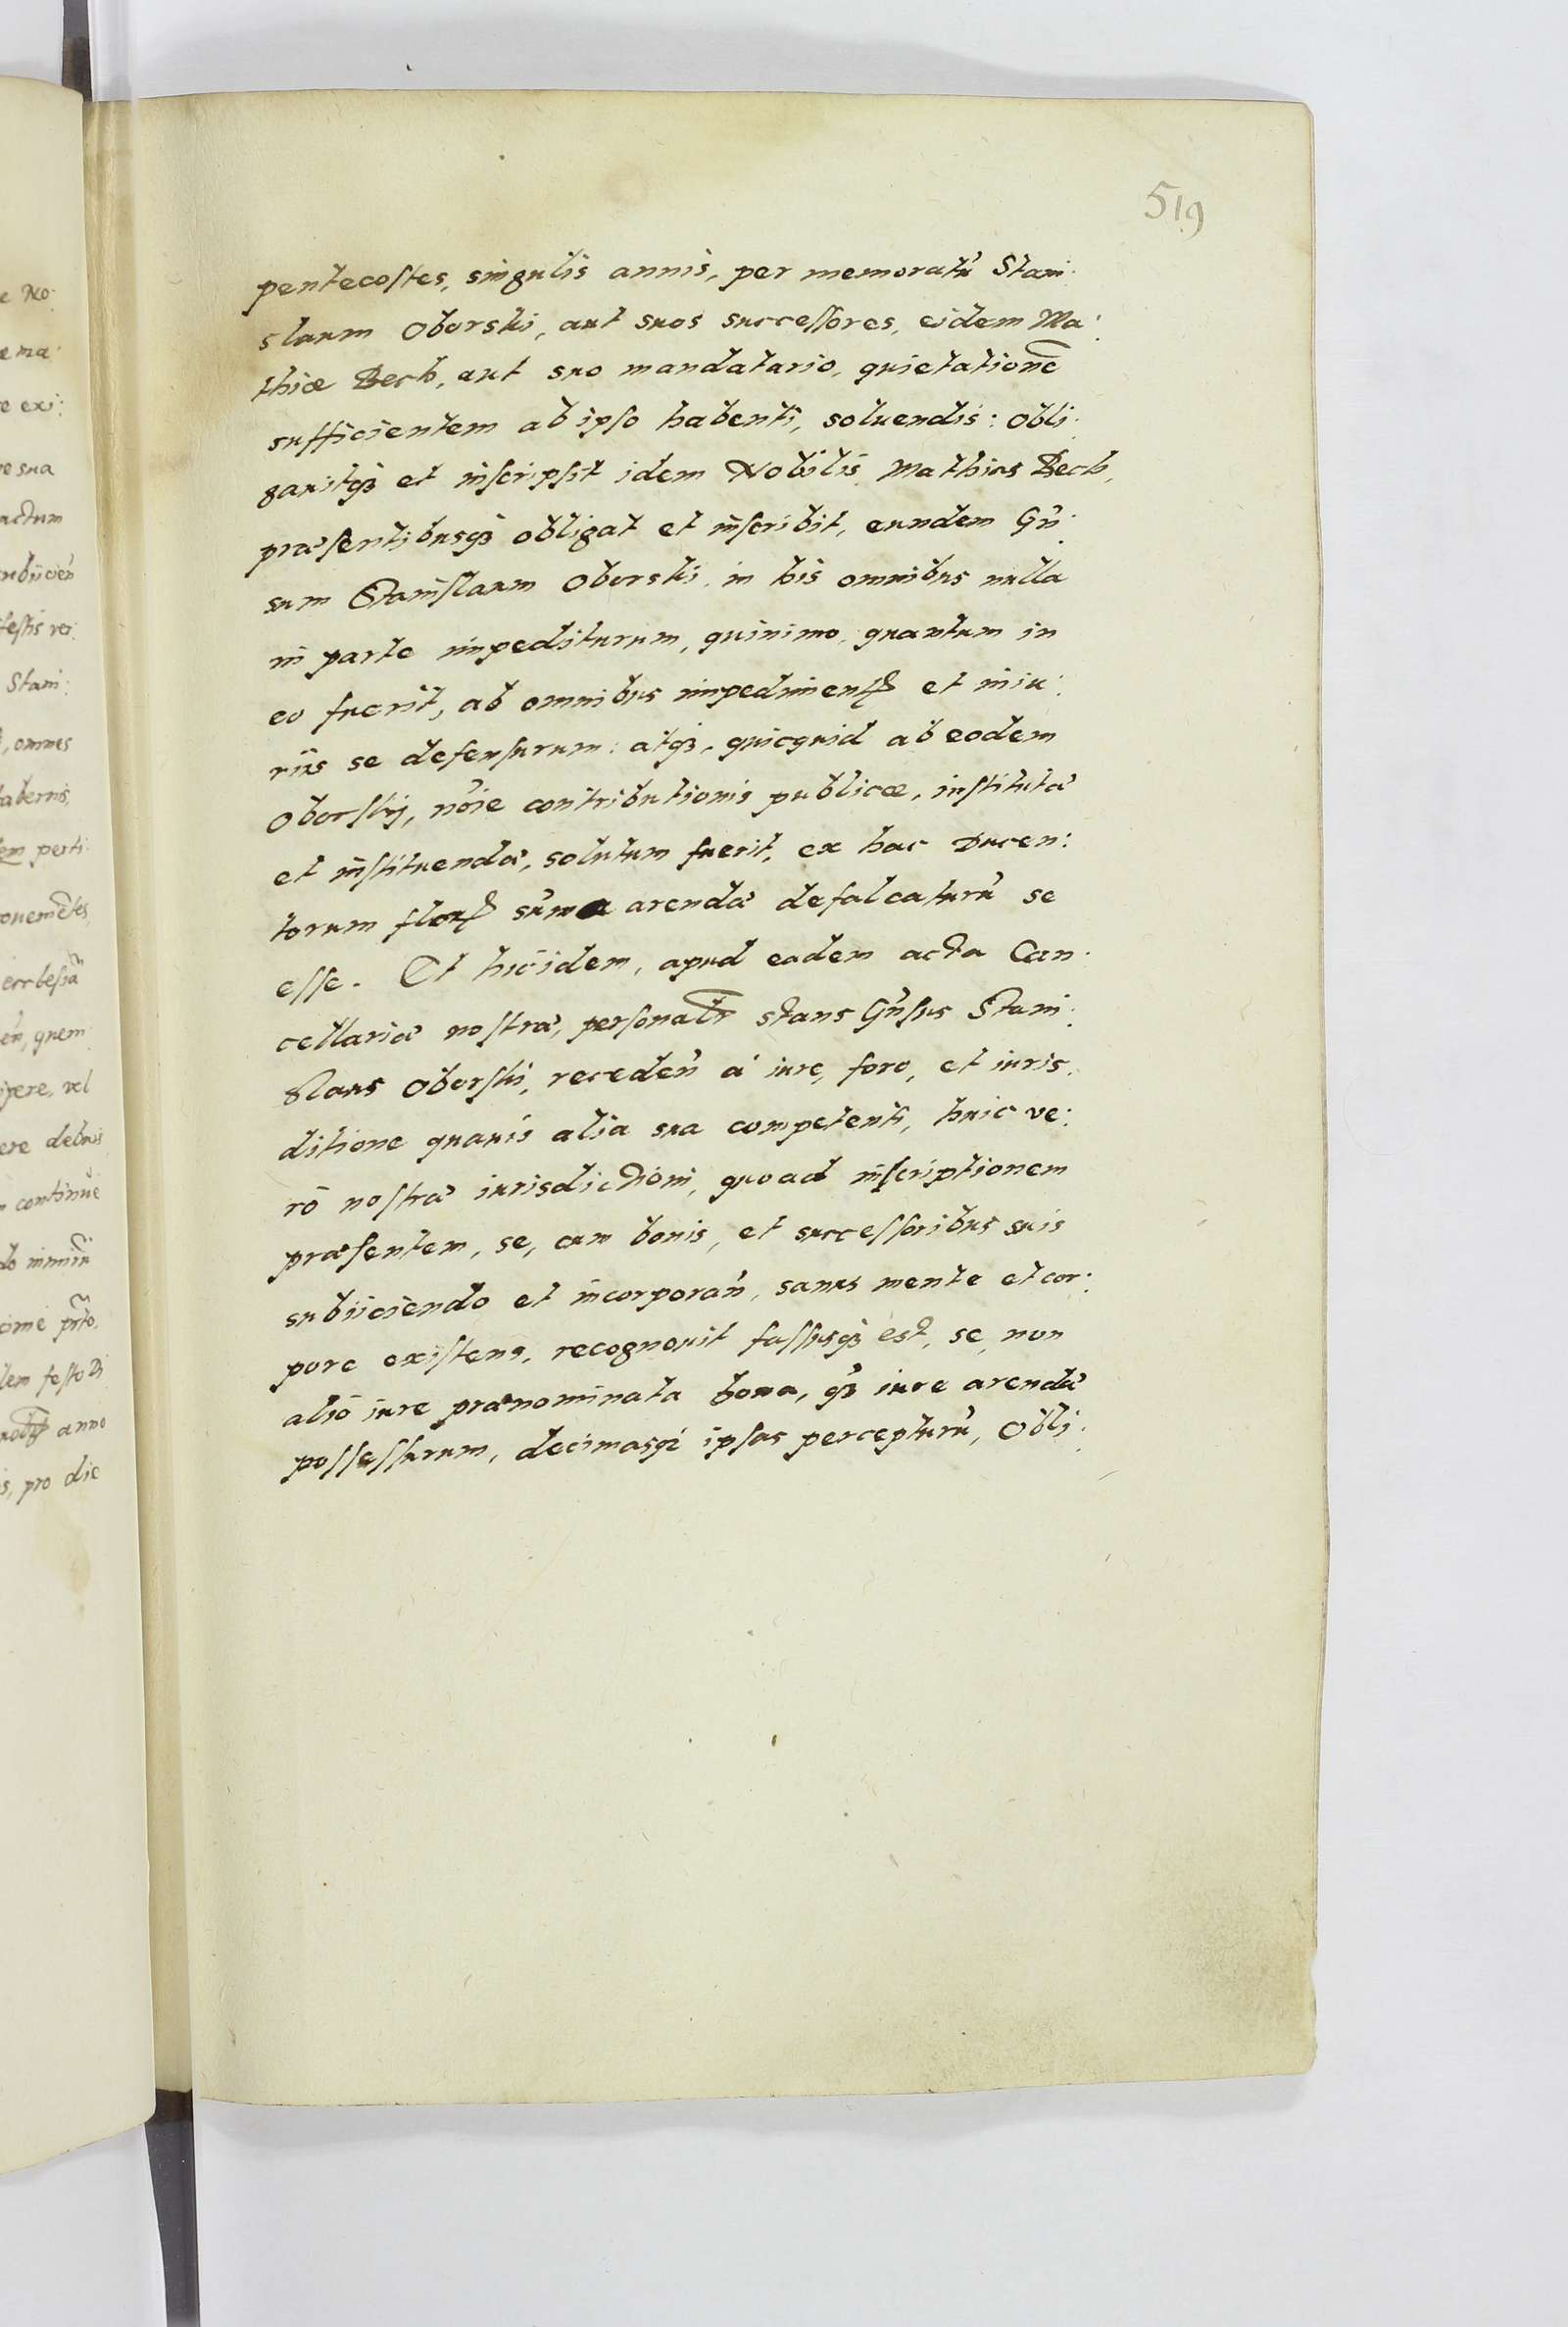 519
pentecostes, singulis annis, per memoratũ Stani:
slaum Oborski, aut suos successores, eidem Ma:
thiæ Bech, aut suo mandatario, quietationẽ
sufficientem ab ipso habenti, soluendis: Obli:
gauitq₃ et inscripsit idem Nobilis Mathias Bech,
præsentibusq₃ obligat et inscribit, eundem Gñ:
sum Stanislaum Oborski, in his omnibus nulla
in parte impediturum, quinimo, quantum in
eo fuerit, ab omnibus impedimentꝭ et iniu:
riis se defensurum: atq₃, quicquid ab eodem
Oborskij, nõie contributionis publicæ, institutæ
et instituendæ, solutum fuerit, ex hac Ducen:
torum florꝭ sũma arendæ defalcaturũ se
esse. Et hic idem, apud eadem acta Can:
cellariæ nostræ, personalr̃ stans Gñsus Stani:
slaus Oborski, recedeñ à iure, foro, et iuris:
ditione quauis alia sua competenti, huic ve:
rò nostræ iurisdictioni, quoad inscriptionem
præsentem, se, cum bonis, et successoribus suis
subiiciendo et incorporañ, sanus mente et cor:
pore existens, recognouit fassusq₃ est, se, non
alio iure prænominata bona, q₃ iure arendæ
possessurum, decimasq₃ ipsas percepturũ, Obli:
e No:
e ma:
e exi:
re sua
actum
ubiicieñ
festis ver:
Stani:
, omnes
tabernis,
em perti:
ecclesiã
eñ, quem
ipere, vel
ere debuis
continuè
do nimirũ
cime pñto,
lem festo Di
anno
s, pro die